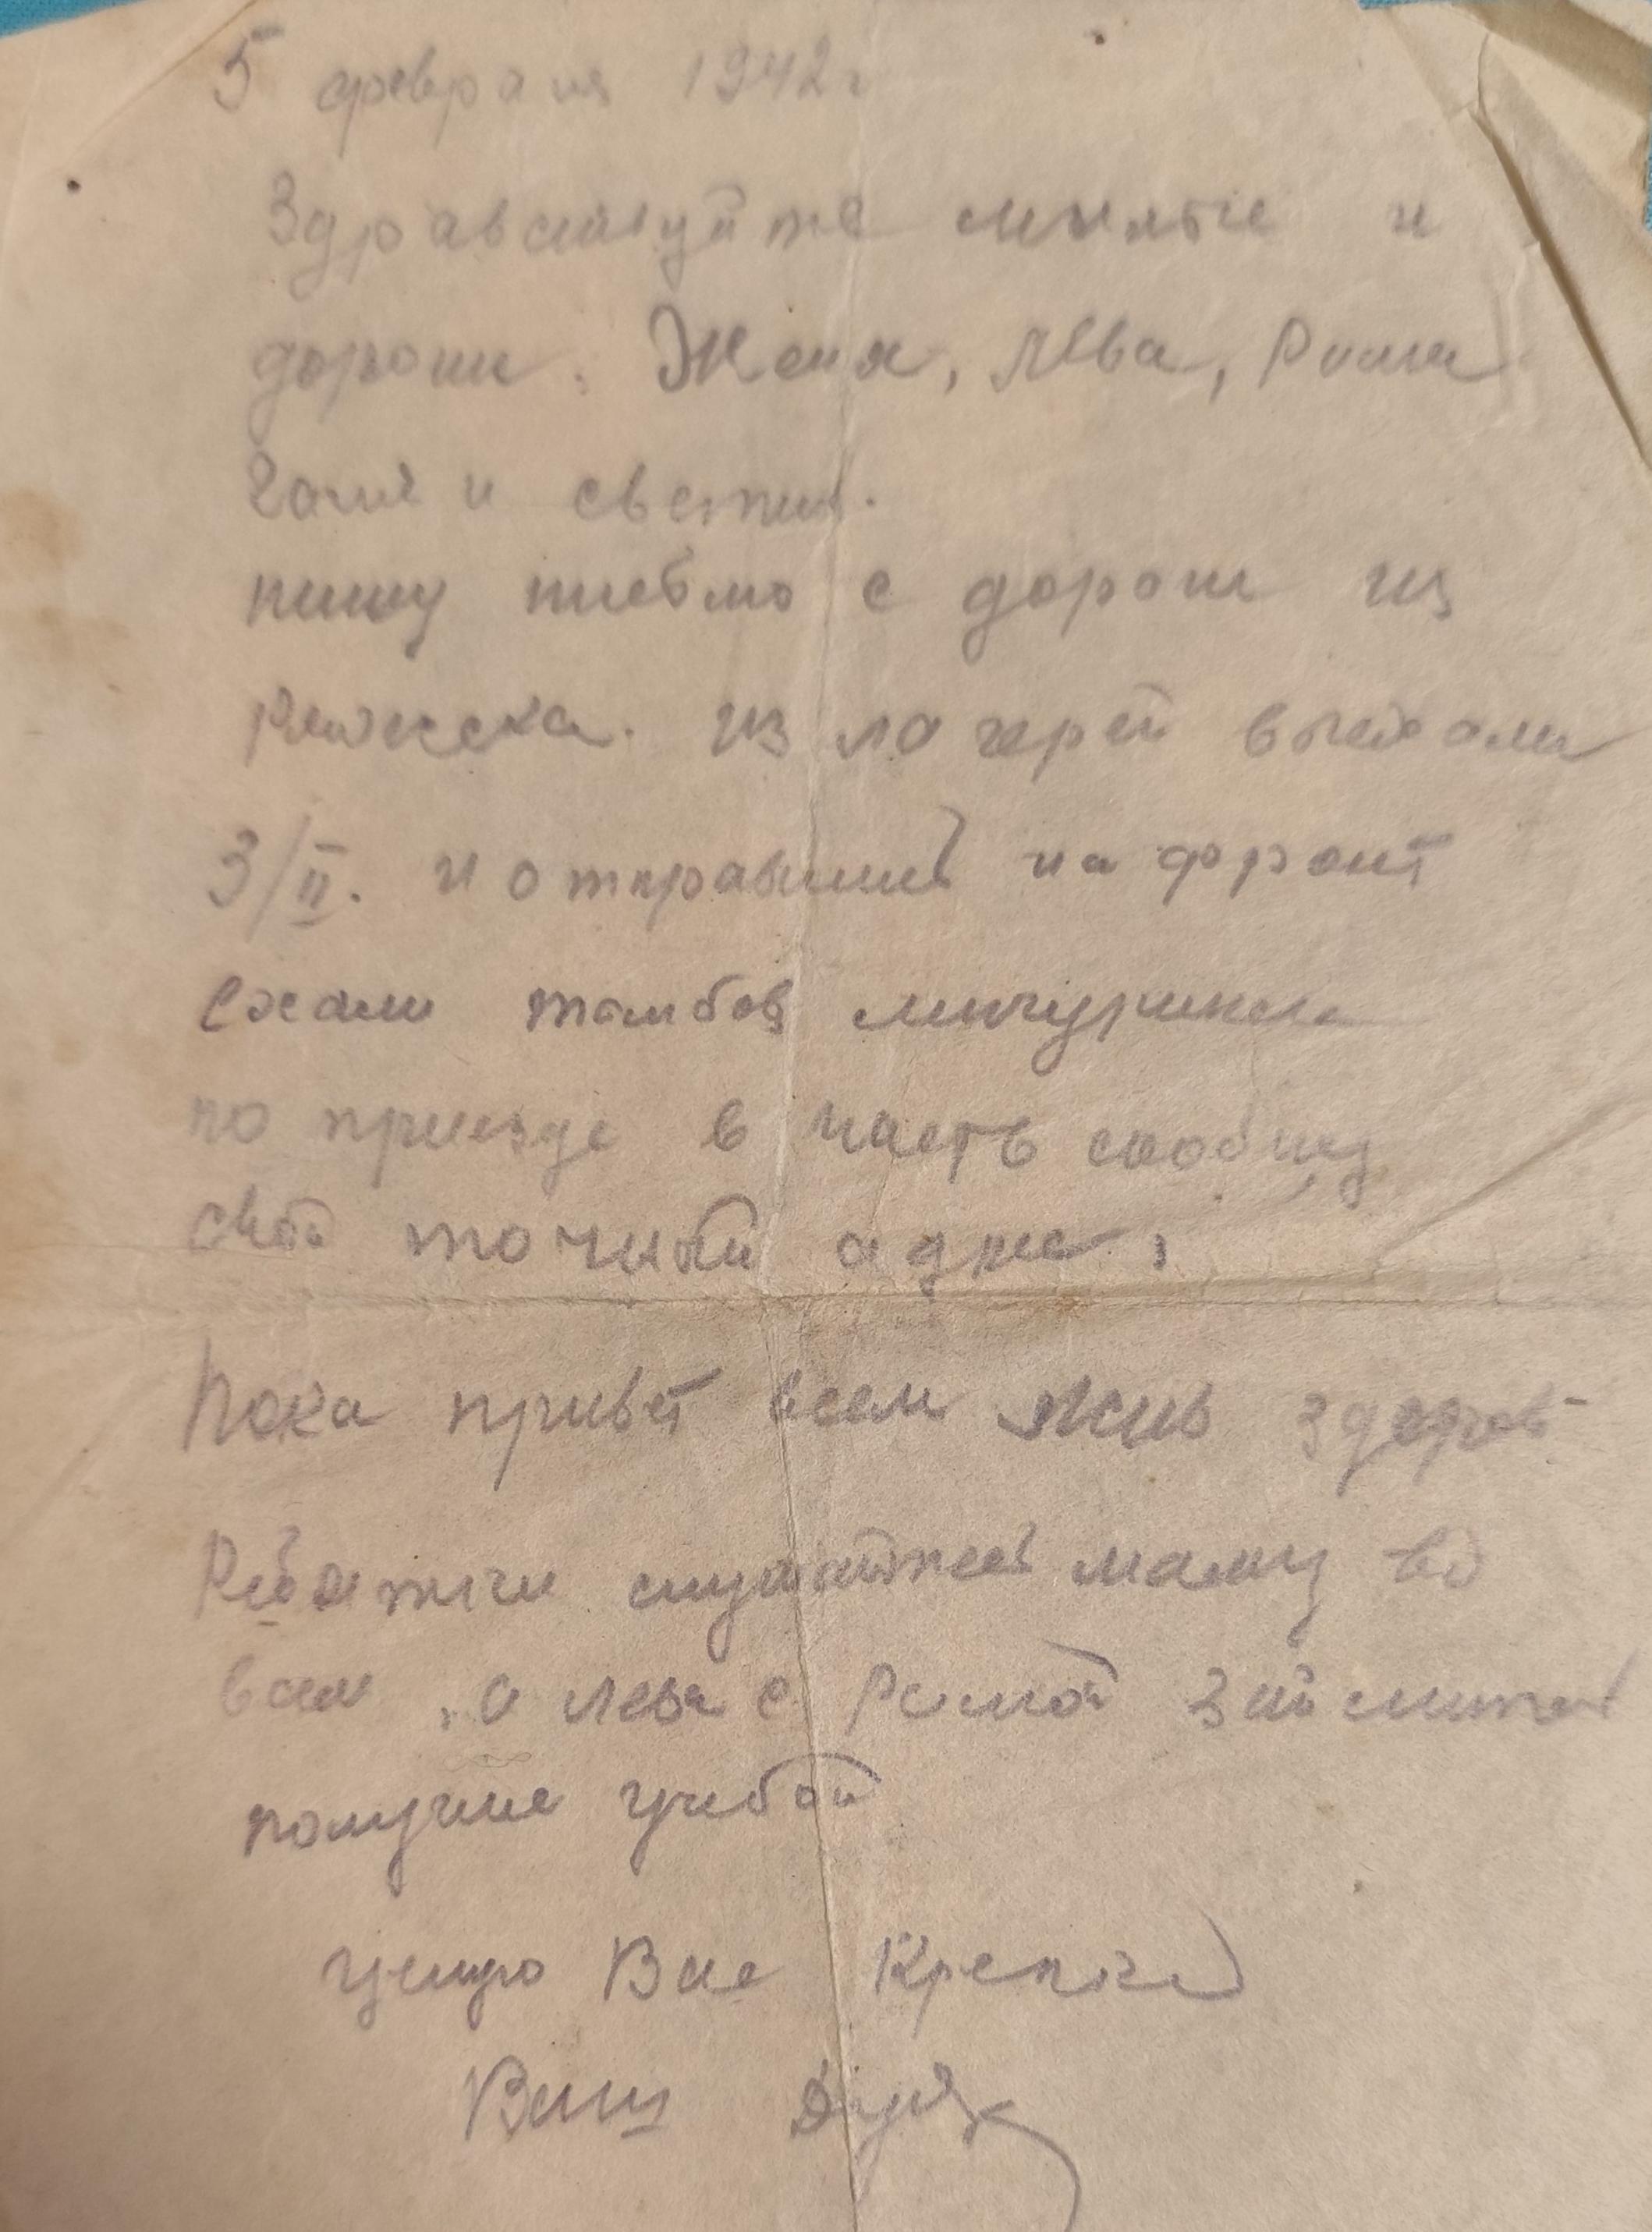 5 февраля 1942 г
Здравствуйте милые и
дороги. Женя, Лёва, Рима
Галя и светик.
пишу письмо с дороги из
Ряжска. из лагерей выехали
3/II. и отправились на фронт
ехали тамбов мичуринск
по приезде в часть сообщу
свой точный адрес,
Пока привет всем жив здоров
Ребятки слушайтесь маму во
всем, а лева с Римой займитесь
получше учебой
целую Вас Крепко
Ваш